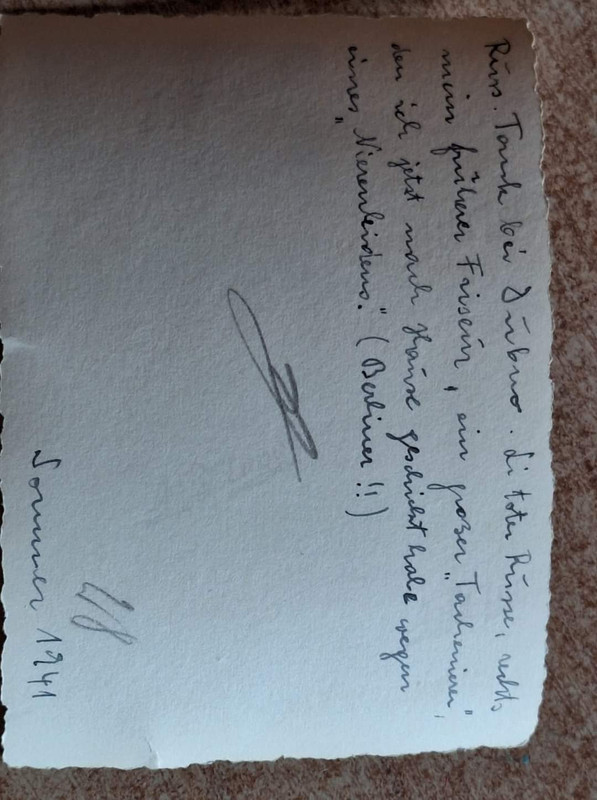 Russ. Tank bei Dubno. Li toter Russe, rechts
mein früherer Friseur, ein grosser
den ich jetzt nach Hause geschickt habe wegen
eines „Nierenleidens." (Berliner!!)
Sommer 1941